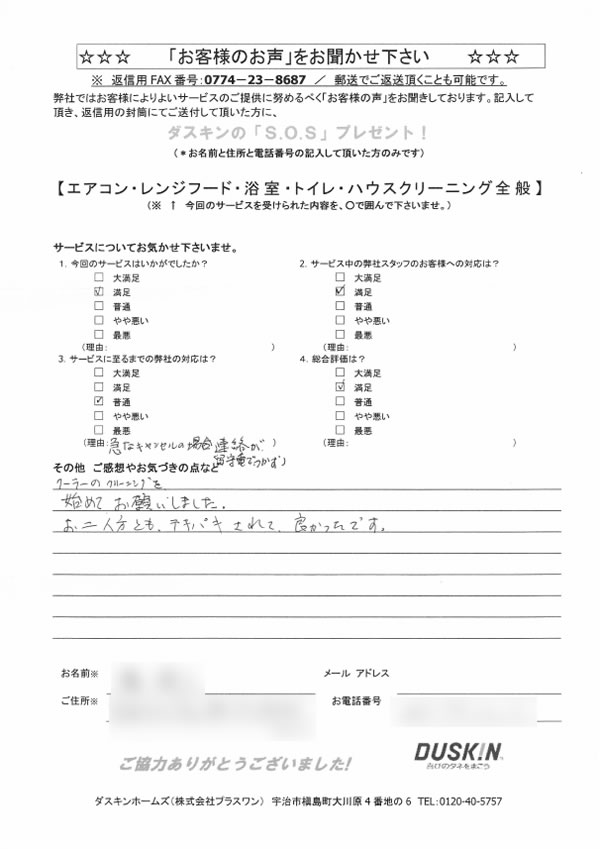 ☆☆☆ 「お客様のお声」をお聞かせ下さい ☆☆☆
※ 返信用FAX番号:0774-23-8687 / 郵送でご返送頂くことも可能です。
弊社ではお客様によりよいサービスのご提供に努めるべく「お客様の声」をお聞きしております。記入して
頂き、返信用の封筒にてご送付して頂いた方に、
ダスキンの「S.O.S」プレゼント!
(*お名前と住所と電話番号の記入して頂いた方のみです)
【エアコン・レンジフード・浴室・トイレ・ハウスクリーニング全般】
(※ ↑ 今回のサービスを受けられた内容を、〇で囲んで下さいませ。)
サービスについてお気かせ下さいませ。
1. 今回のサービスはいかがでしたか?
□ 大満足
☑ 満足
□ 普通
□ やや悪い
□ 最悪
(理由: )
2. サービス中の弊社スタッフのお客様への対応は?
□ 大満足
☑ 満足
□ 普通
□ やや悪い
□ 最悪
(理由: )
3. サービスに至るまでの弊社の対応は?
□ 大満足
□ 満足
☑ 普通
□ やや悪い
□ 最悪
(理由: 急なキャンセルの場合連絡が、
留守電でつかず)
4. 総合評価は?
□ 大満足
☑ 満足
□ 普通
□ やや悪い
□ 最悪
(理由: )
その他 ご感想やお気づきの点など
クーラーのクリーニングを
始めてお願いしました。
お二人方とも、テキパキされて、良かったです。
お名前※
メール アドレス
ご住所※
お電話番号
ご協力ありがとうございました!
DUSKIN
喜びのタネをまこう
ダスキンホームズ(株式会社プラスワン) 宇治市槇島町大川原4番地の6 TEL:0120-40-5757